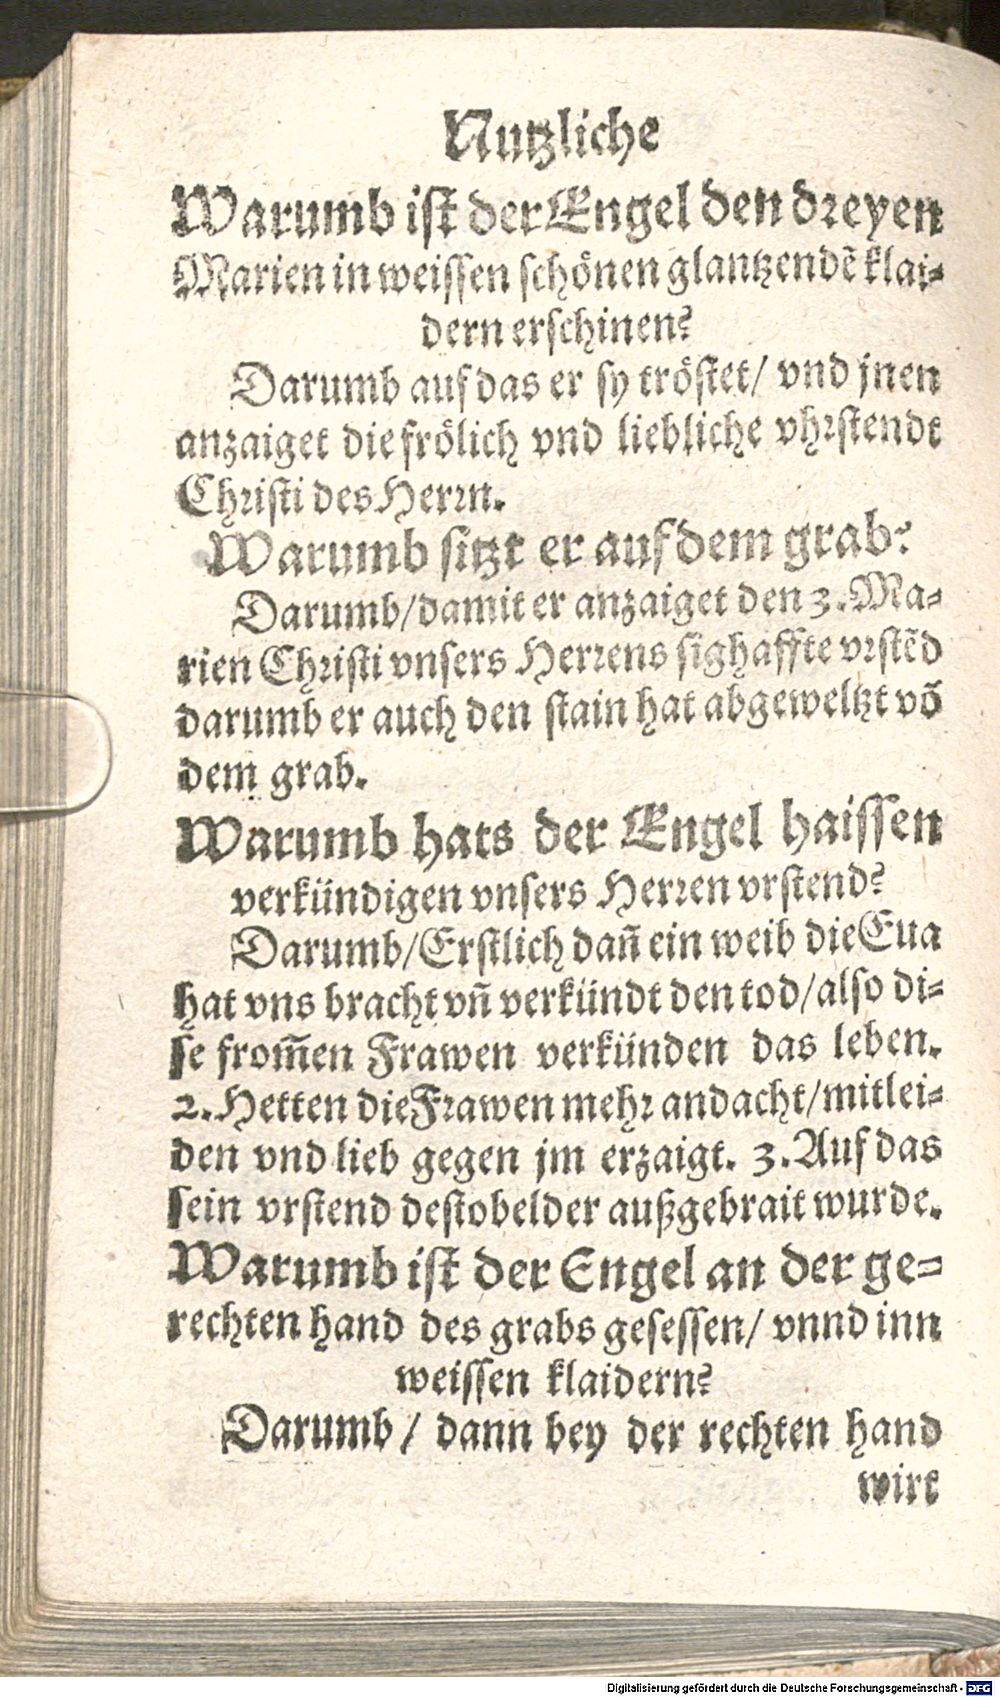 Nutzliche
Warumb ist der Engel den dreyen
Marien in weissen schönen glantzendẽ klai⸗
dern erschinen?
Darumb auf das er sy tröstet/ vnd jnen
anzaiget die frölich vnd liebliche vhrstendt
Christi des Herrn.
Warumb sitzt er auf dem grab?
Darumb/damit er anzaiget den 3. Ma⸗
rien Christi vnsers Herrens sighaffte vrstẽd
darumb er auch den stain hat abgeweltzt võ
dem grab.
Warumb hats der Engel haissen
verkündigen vnsers Herren vrstend?
Darumb/Erstlich dañ ein weib die Eua
hat vns bracht vñ verkündt den tod/also di⸗
se from̃en Frawen verkünden das leben.
2. Hetten die Frawen mehr andacht/mitlei⸗
den vnd lieb gegen jm erzaigt. 3. Auf das
sein vrstend destobelder außgebrait wurde.
Warumb ist der Engel an der ge⸗
rechten hand des grabs gesessen/ vnnd inn
weissen klaidern?
Darumb / dann bey der rechten hand
wirt
Digitalisierung gefördert durch die Deutsche Forschungsgemeinschaft - DFG